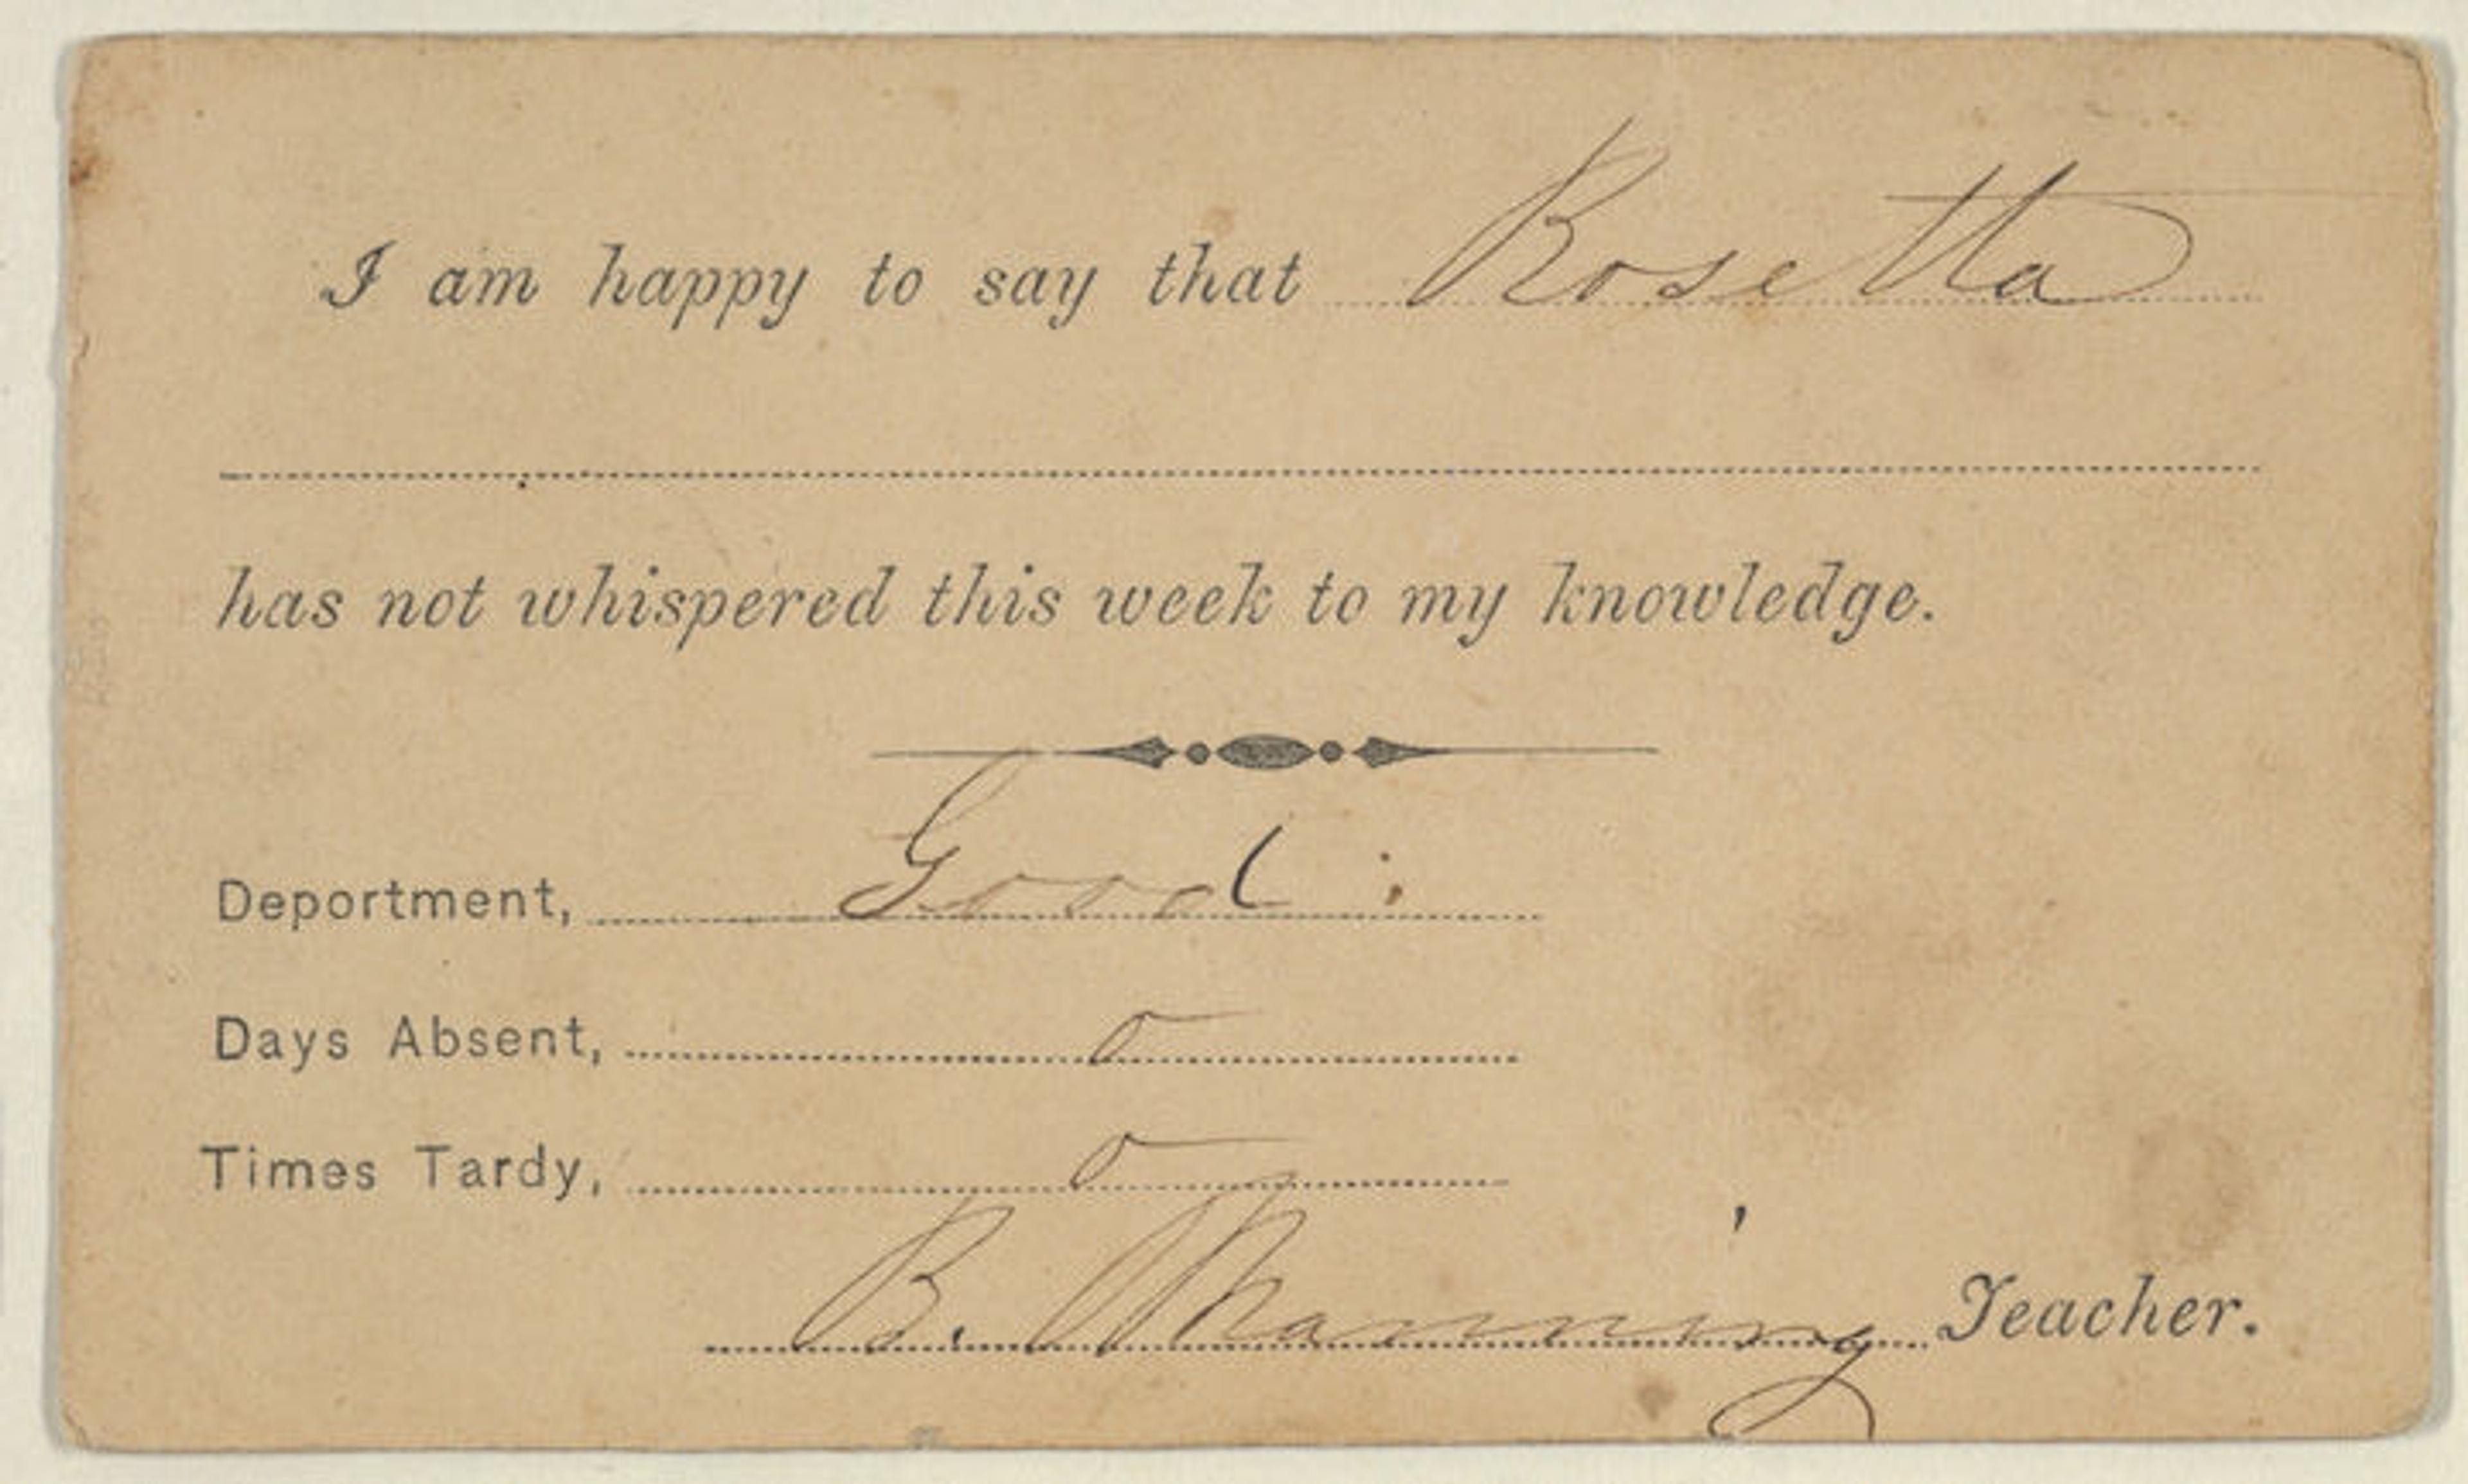 I am happy to say that Rosetta
has not whispered this week to my knowledge.
Deportment, Good.
Days Absent, 0
Times Tardy, 0
B. Manning Teacher.